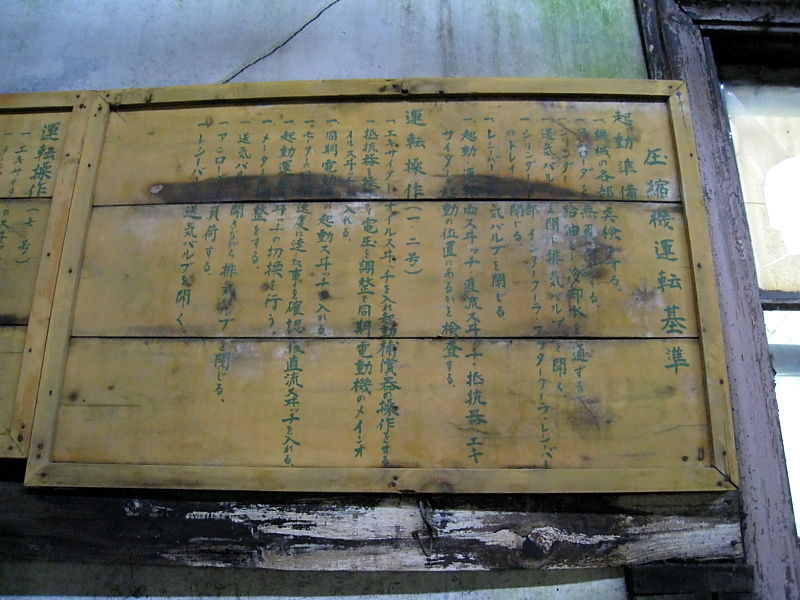 圧縮機運転基準
起動準備
一 機械の各部点検する、
一 アンローダを無負荷にする、
一 シリンダー給油し冷却水を通ずる、
一 送気バルブを閉じ排気バルブを開く、
一 シリンダー インタークーラ アフタークーラ、レシーバー
のドレイン 閉じる、
一 レシーバー 気バルブを閉じる
一 起動 運転両スヰッチ 直流スヰッチ 抵抗器 エキ
サイター 起動の位置にあるかを検査する、
運転操作(一、二号)
一 エキサイターオイルスヰッチを入れ起動補償器の操作をする
一 抵抗器を 電圧を調整 同期電動機のメインオ
イルスヰッチ 入れる、
一 同期電動 の起動スヰッチ 入れる、
一 モーターの 速度に達した事を確認 後直流スヰッチを入れる、
一 起動運転スヰッチの切換を行う、
一 メーター 整をする、
一 送気バル 開きながら排気バルブ 閉じる、
一 アンロー 負荷する、
一 レシーバー 送気バルブを開く
運転操作(七号)
一 エキサイ